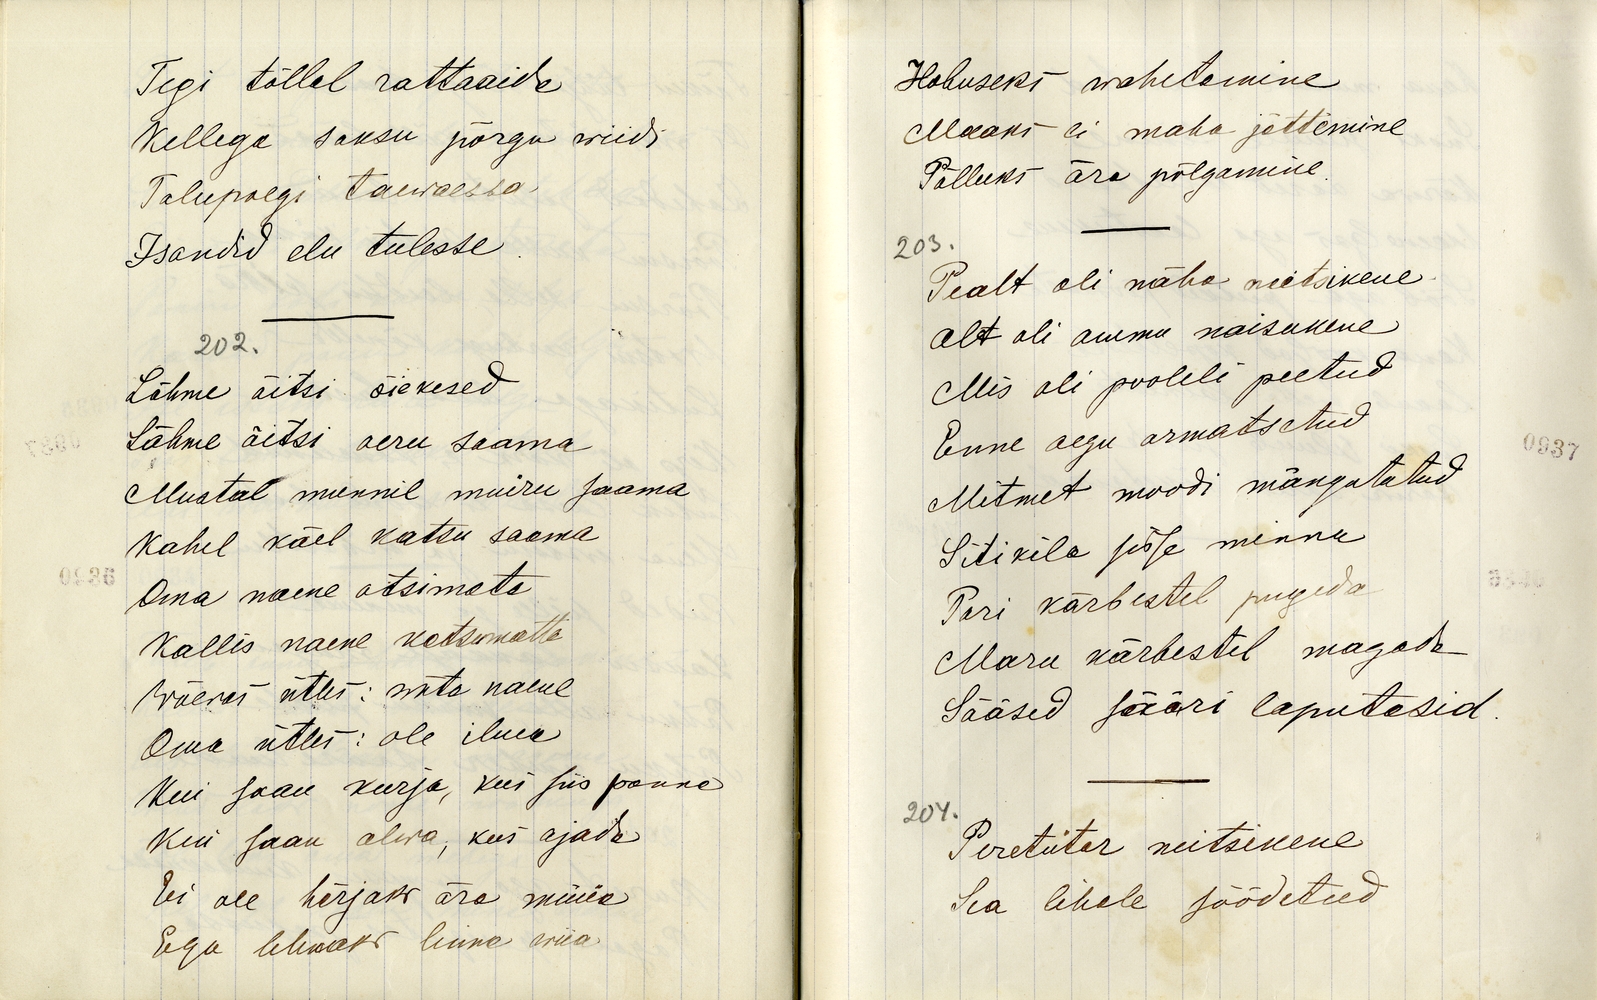 Tegi tõllal rattaaida
Kellega saksu põrgu wiidi
Talupoegi taewaessa
Isandid elu tulesse.
202.
Lähme äitsi õiekesed
Lähme äitsi aeru saama
Mustal munnil muiru saama
Kahel käel katsu saama
Oma naene otsimata
Kallis naene katsumatta
Wõeras ütles: wõta naene
Oma ütles: ole ilma
Kui saan kurja, kus siis panna
Kui saan alwa, kus ajada
Ei ole härjaks ära müüa
Ega lehmaks linna wiia
Hobuseks wahetamine
Maaks ei maha jättemine
Põlluks ära põlgamine.
203.
Pealt oli näha neitsikene
Alt oli ammu naisukene
Mis oli pooleli peetud
Enne aegu armatsetud
Mitmet moodi mängutatud
Sitikila sisse minna
Pari kärbestel pugeda
Maru kärbestel magada
Sääsed sääri laputasid.
204.
Peretütar neitsikene
Sea lihale söödetud
0937